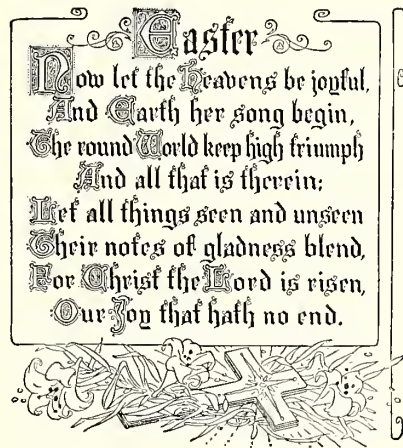 Easter
Now let the Heavens be joyful,
And Earth her song begin,
The round World keep high triumph
And all that is therein;
Let all things seen and unseen
Their notes of gladness blend,
For Christ the Lord is risen,
Our Joy that hath no end.